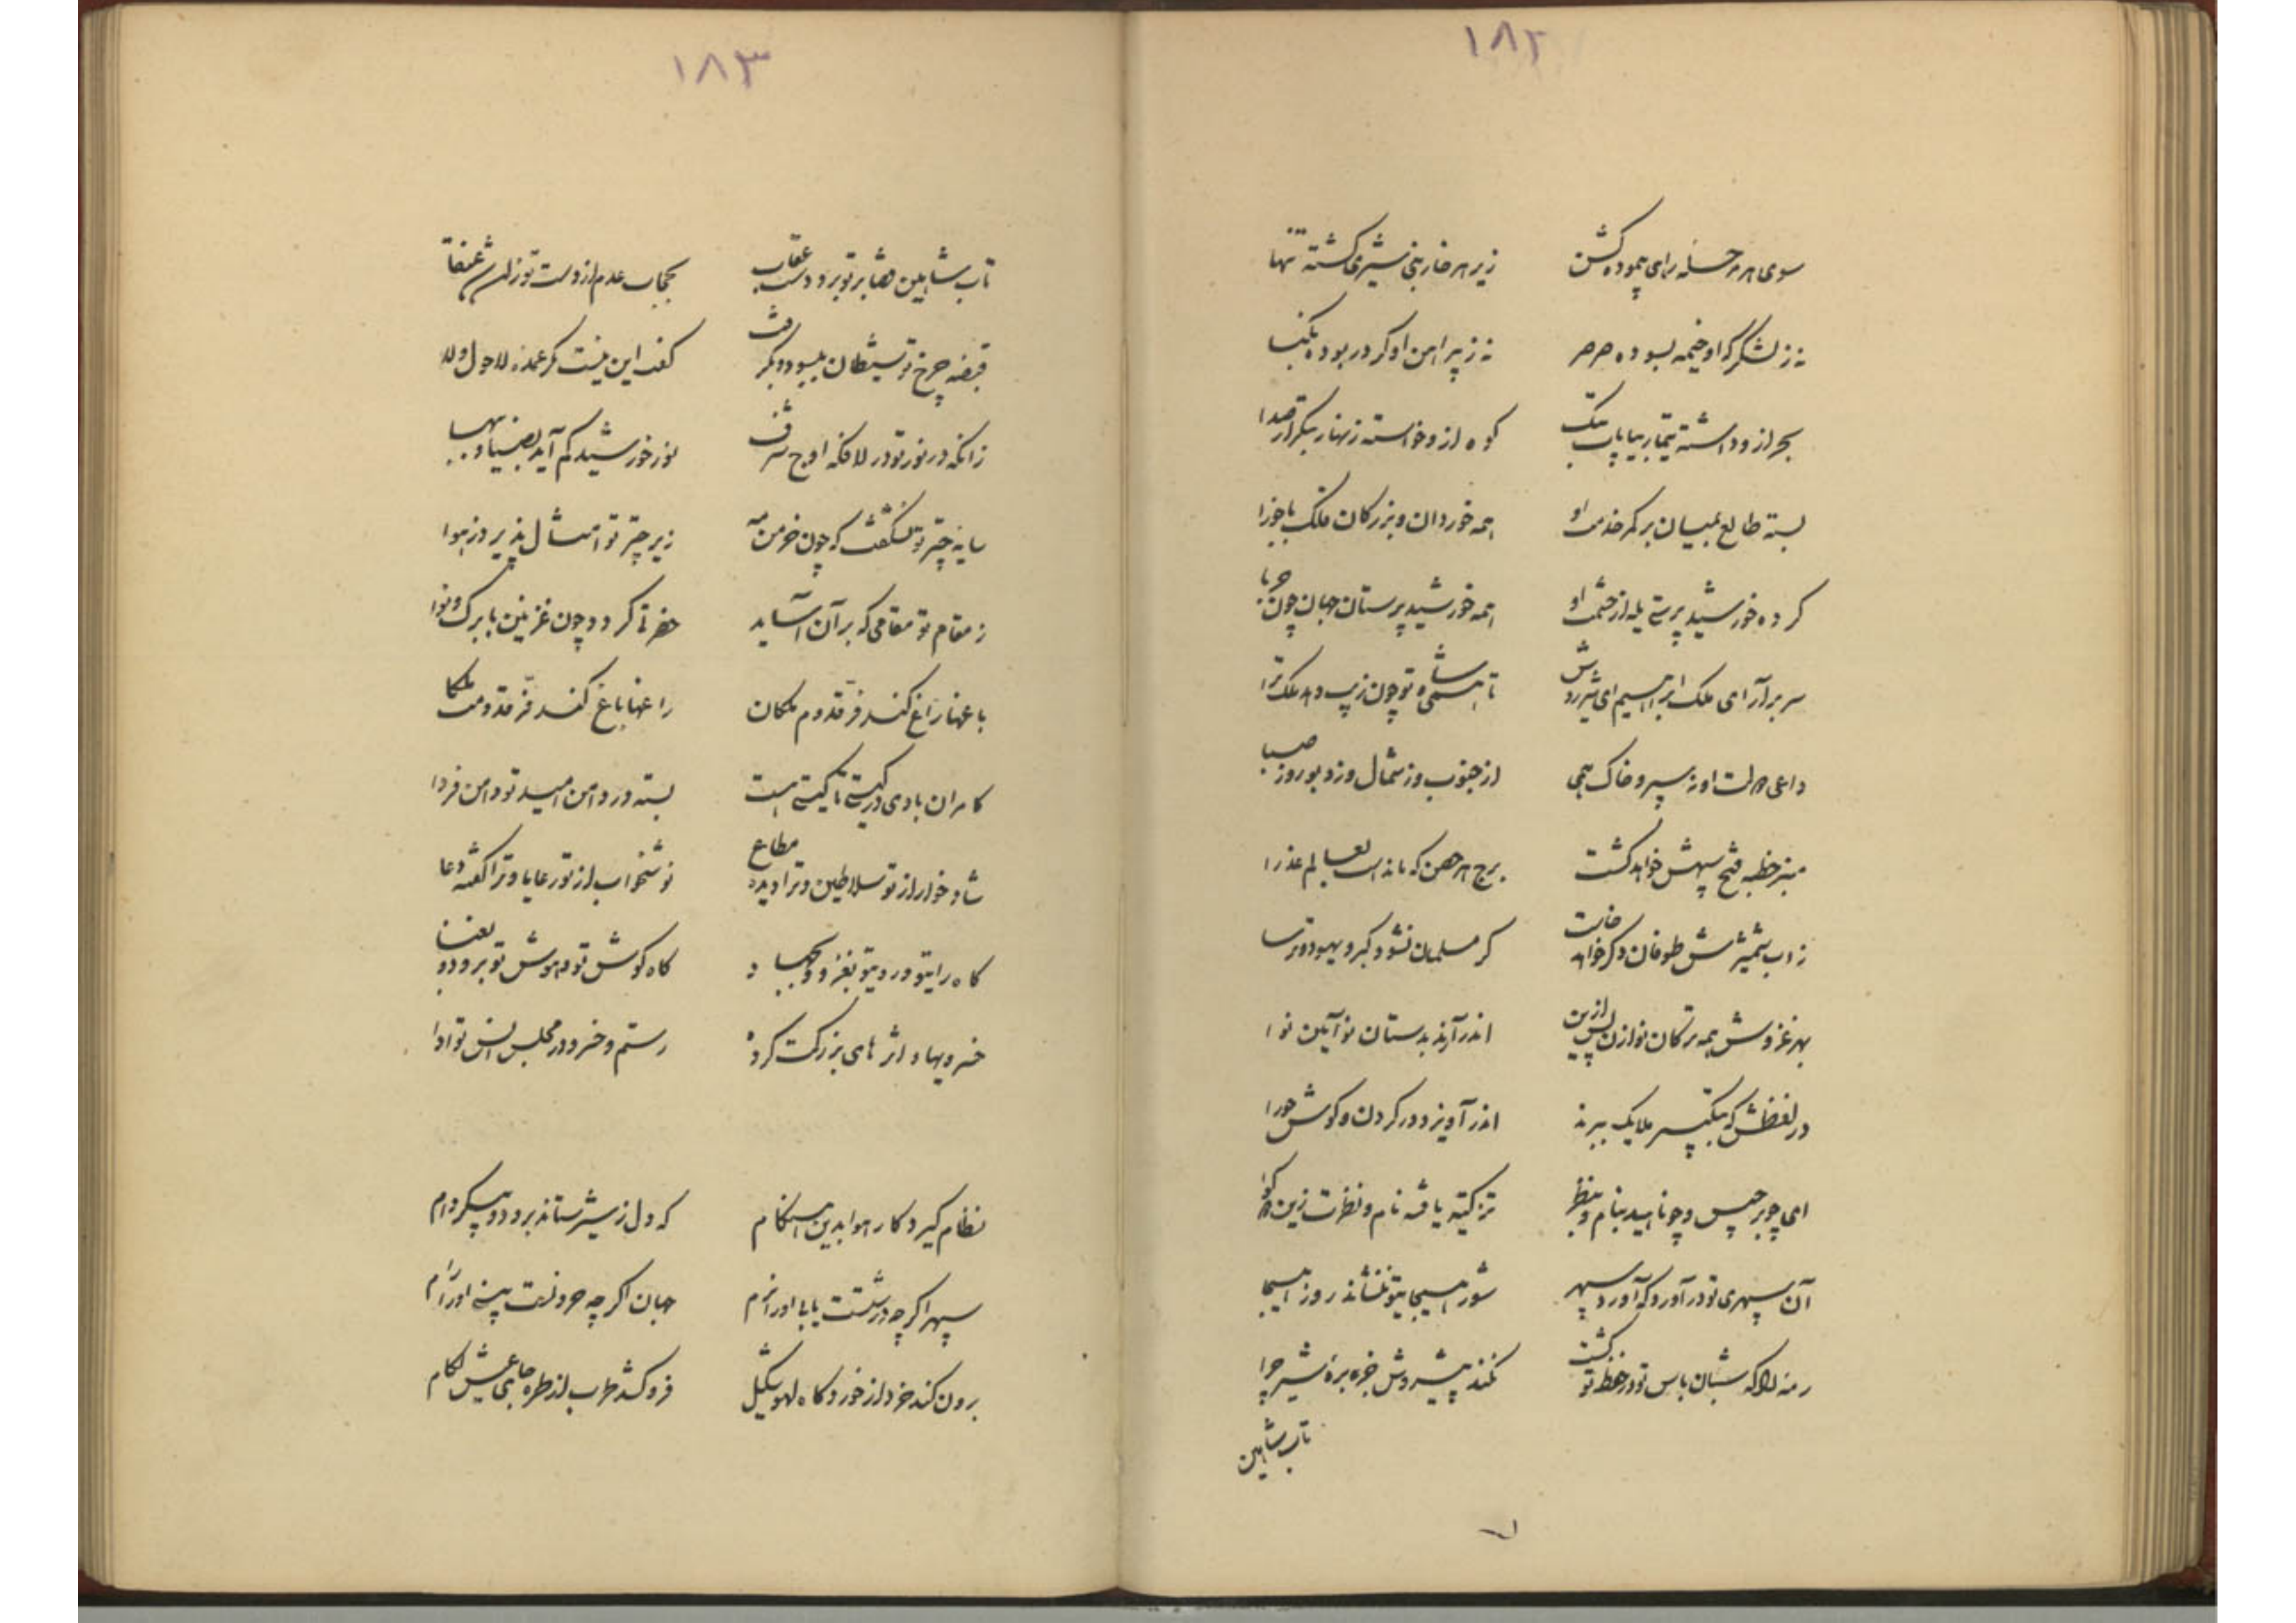 ۱۸۲
سوی هر مرحله رای پیموده کشن زیر هر خار بنی شیری کشته تنها
نه ز لشکر که او خیمه بسوده صرصر نه ز پیرامن او کرد ربوده نکبا
بحر ازو داشته تیمار بیابان کوه ازو خواسته زنهار
بسته طالع بمیان بر کمر خدمت او همه خوردان و بزرکان فلک با جوزا
کرده خورشید پرستی یله از حشمت او همه خورشید پرستان جهان چون حربا
سر برآرای ملک ابراهیم ای تا شاه تو چون زیب دهد ملک ترا
داعی دولت او ز سپر و خاک همی از جنوب وز شمال وز دبور وز صبا
منبر خطبه فتح سپهش خواهد کشت برج هر حصن که ماند لم عذرا
ز آب شمشیرش طوفان دکر خواهد خاست کر مسلمان نشود کبر و یهود و ترسا
بهر غزوش همه ترکان نو ازین پس اندر آرند بدستان نو آیین نوا
در لفظش که ملایک ببرند اندر آویزد در کردن و کوش حورا
ای چو برجیس و چو ناهید بنام و بنظر تزکیه یافته نام و نظرت زین دو کوا
آن سپهری تو در آورد که آورد سپهر شور هیجا بتو ننشاند روز هیجا
رمه را که شبان باس تو در حفظ تو کشت نکند پیشروش جز بره شیر چرا
تاب شاهین
۱۸۳
تاب شاهین تو برد دست عقاب بحجاب عدم از دست تو زان شد عنقا
قبضه چرخ تو شیطان بپسود و بکرفت کفت این نیست مکر عمده لا حول ولا
زانکه در نور تو در لافکه اوج شرف نور خورشید کم آید بضیا و ببها
سایه چتر تو نشکفت که چون خرمن مه زیر چتر تو امثال پذیرد ز هوا
ز مقام تو مقامی که بر آن آساید حضرتی کردد چون غزنین با برک و نوا
باغها زاغ کند فر قدوم ملکان راغها باغ کند فر قدوم ملکا
کامران بادی در کیتی تا کیتی هست بسته در دامن امید تو دامن فردا
شاد خوار از تو سلاطین و ترا دیده مطاع نو شخواب از تو رعایا و ترا کفته دعا
کاه رایت و رویت بغز و کاه کوش تو و هوش تو برود و بغنا
خسرویها و اثر های بزرکت کرده رستم و خسرو در مجلس انس تو ادا
نظام کیرد کار هوا بدین هنکام که دل ز شیر ستاند برود و پیکر دام
سپهر اکر چه درشتست یابی اورا نرم جهان اکر چه حرونست بینی اورا رام
برون کند خرد از خوردکاه لهو شکیل فرو کشد طرب از طره جای عیش لکام